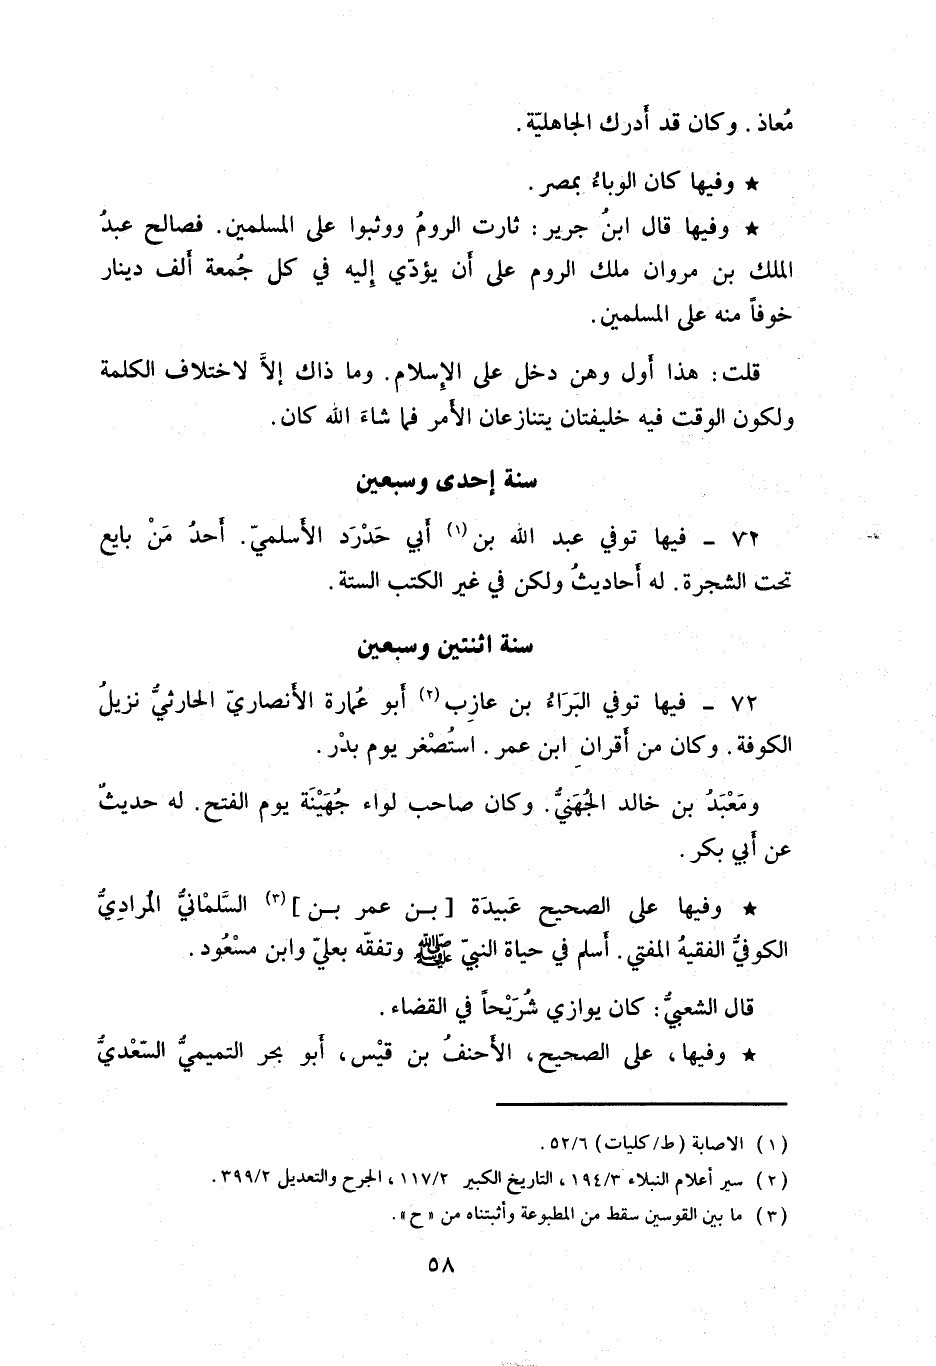 مُعاذ. وكان قد أَدرك الجاهليّة.
★ وفيها كان الوباءُ بمصر.
★ وفيها قال ابنُ جرير: ثارت الرومُ ووثبوا على المسلمين. فصالح عبدُ
الملك بن مروان ملك الروم على أَن يؤدّي إِليه في كل جُمعة أَلف دينار
خوفاً منه على المسلمين.
قلت: هذا أَول وهن دخل على الإِسلام. وما ذاك إلاَّ لاختلاف الكلمة
ولكون الوقت فيه خليفتان يتنازعان الأَمر فما شاءَ الله كان.
سنة إحدى وسبعين
٧٢ - فيها توفي عبد الله بن(١) أَبي حَدْرَد الأَسلميّ. أَحدُ مَنْ بايع
تحت الشجرة. له أَحاديثُ ولكن في غير الكتب الستة.
سنة اثنتين وسبعين
٧٢ - فيها توفي البَرَاءُ بن عازِب(٢) أَبو عُمارة الأَنصاريّ الحارثيُّ نزيلُ
الكوفة. وكان من أَقران ابن عمر. استُصْغر يوم بدْر.
ومَعْبَدُ بن خالد الجُهَنيُّ. وكان صاحب لواء جُهَيْنَة يوم الفتح. له حديثٌ
عن أَبي بكر.
★ وفيها على الصحيح عَبيدَة [بـن عمر بـن](٣) السَّلمْانيُّ المُراديُّ
الكوفيُّ الفقيهُ المفتي. أَسلم في حياة النبيّ ﷺ وتفقّه بعليّ وابن مسْعُود.
قال الشعبيُّ: كان يوازي شُرَيْحاً في القضاء.
★ وفيها، على الصحيح، الأَحنفُ بن قيْس، أَبو بحر التميميُّ السّعْديُّ
(١) الاصابة (ط/كليات) ٥٢/٦.
(٢) سير أعلام النبلاء ١٩٤/٣، التاريخ الكبير ١١٧/٢، الجرح والتعديل ٣٩٩/٢.
(٣) ما بين القوسين سقط من المطبوعة وأثبتناه من «ح».
٥٨